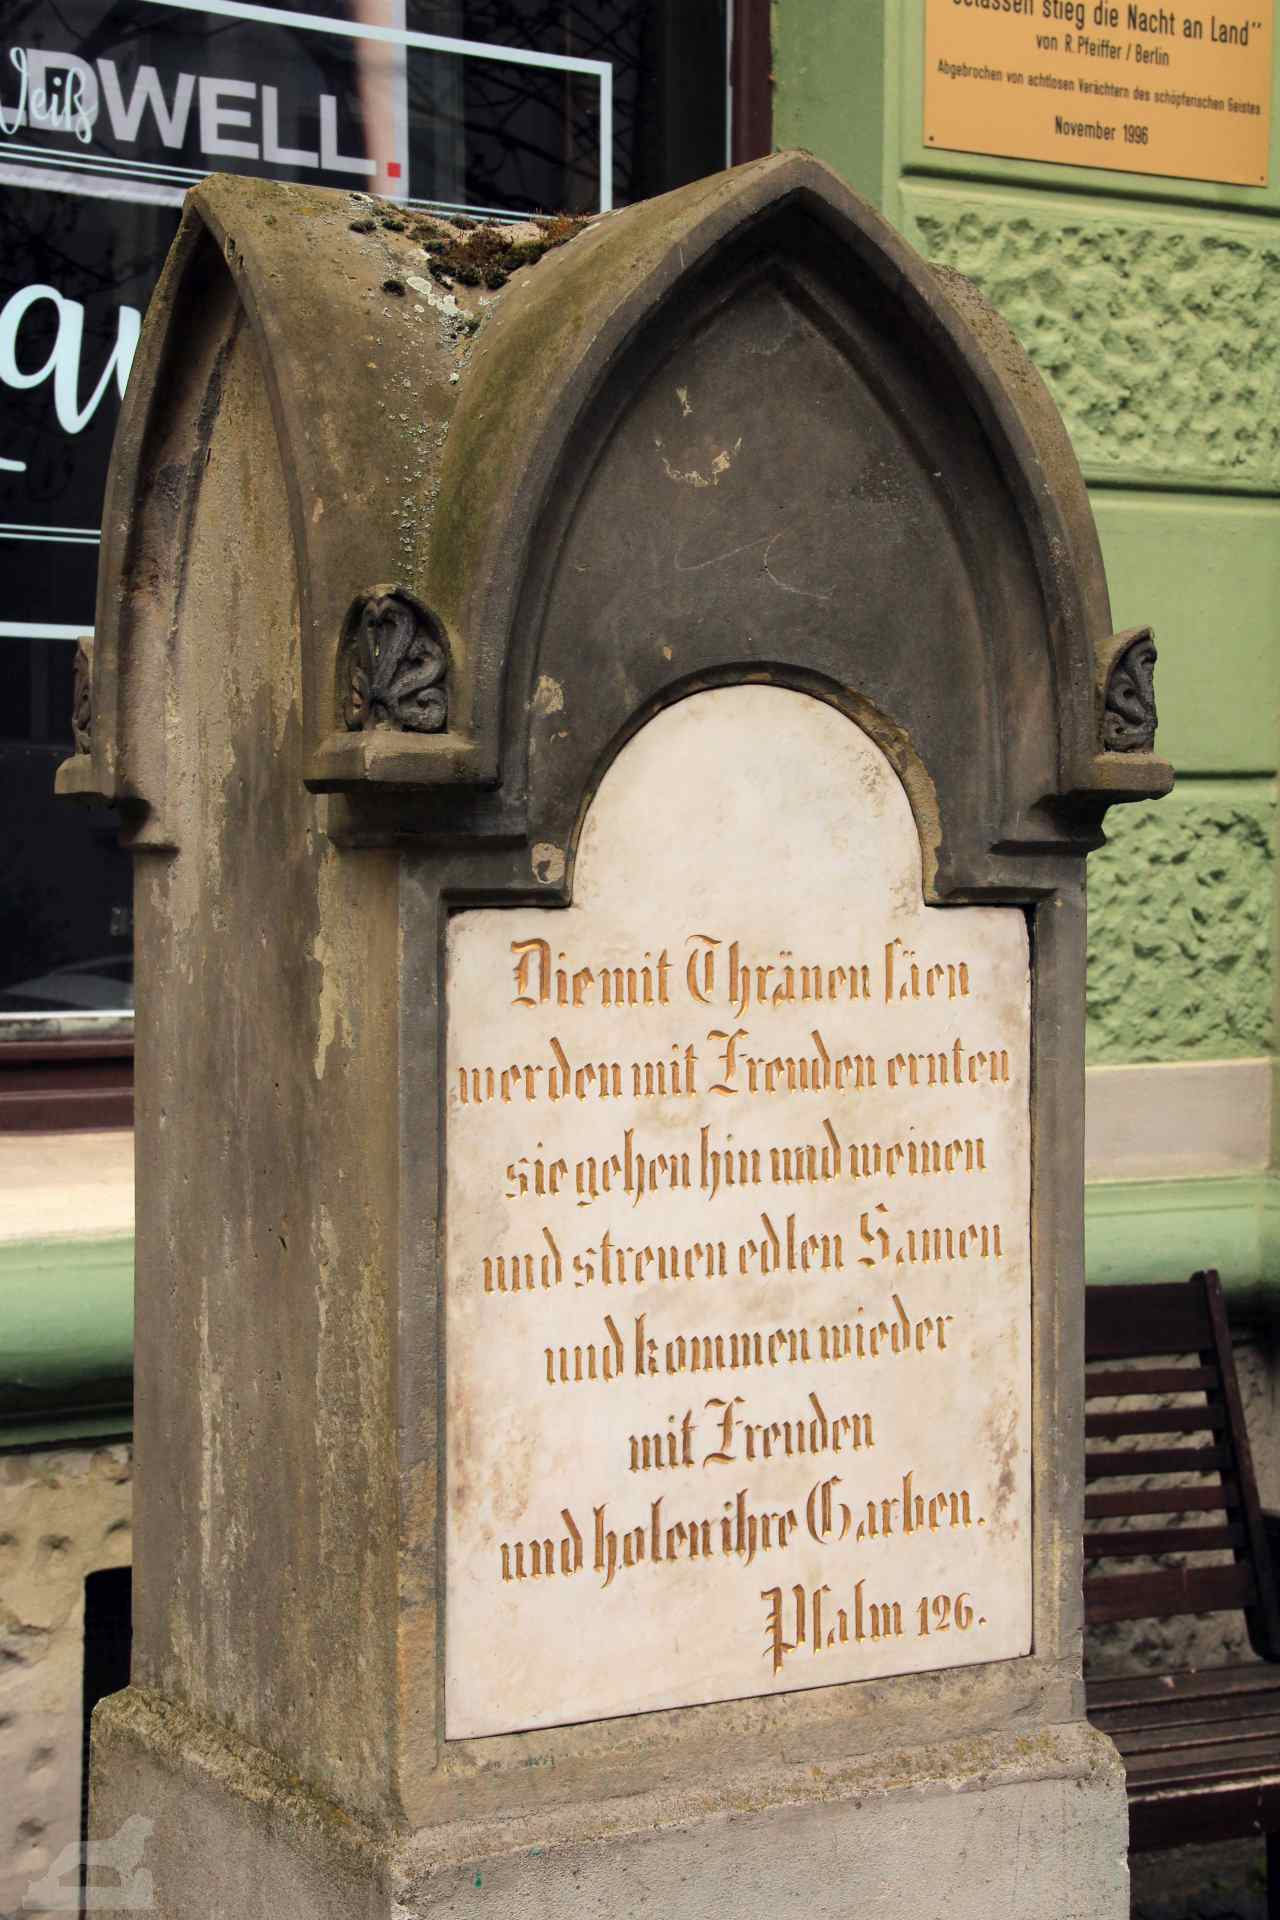 Weiß
DWELL.
au
Gelassen stieg die Nacht an Land"
von R. Pfeiffer / Berlin
Abgebrochen von achtlosen Verächtern des schöpferischen Geistes
November 1996
Die mit Thränen säen
werden mit Freuden ernten
sie gehen hin und weinen
und streuen edlen Samen
und kommen wieder
mit Freuden
und holen ihre Garben.
Psalm 126.